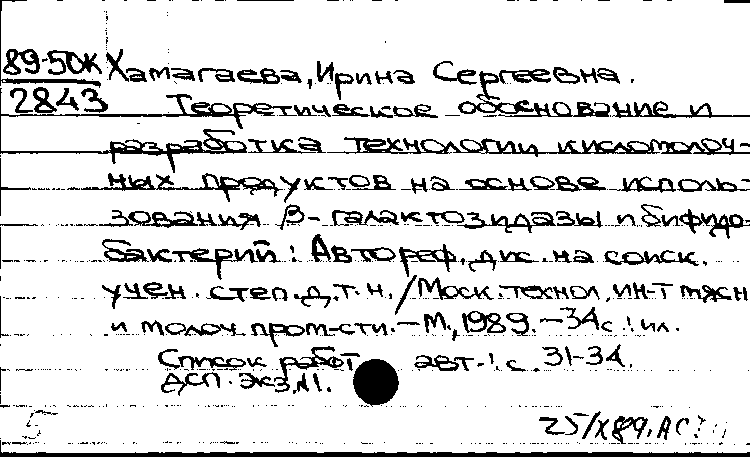 89-50К Хамагаева, Ирина Сергеевна.
2843 Теоретическое обоснование и
разработка технологии кисломолоч-
ных продуктов на основе исполь-
зования β-галактозидазы и бифидо-
бактерий: Автореф. дис. на соиск.
учен. степ. д. т. н. / Моск. технол. ин-т мясн
и молоч. пром-сти. - М., 1989. - 34 с. : ил.
Список работ авт.: с. 31-34.
ДСП. Экз. N1.
5 25/X89. АС